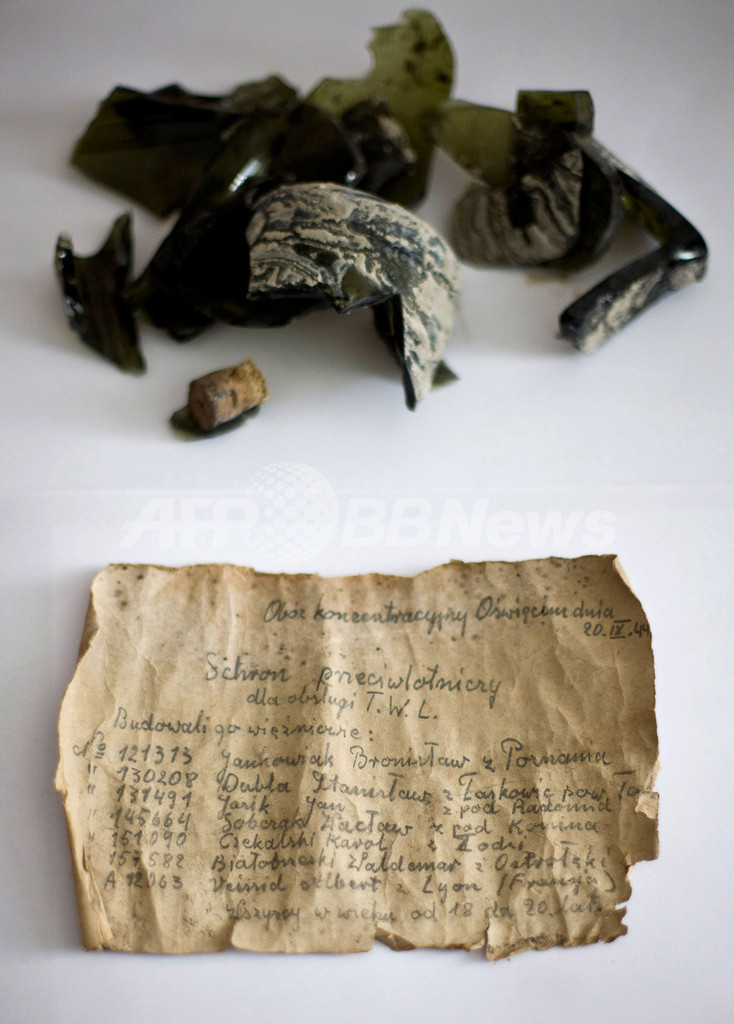 AFP BBNews
Obóz koncentracyjny Oświęcim dnia
20.IX.44
Schron przeciwlotniczy
dla obsługi T.W.L.
Budowali go więźniowie:
№ 121313 Jankowiak Bronisław z Poznania
" 130208 Dubla Stanisław z Łaskowic pow. Ła-
" 131491 Jasik Jan z pod Radomia
" 145664 Sobczak Wacław z pod Konina
" 151090 Czekalski Karol z Łodzi
" 157582 Białobrzeski Waldemar z Ostrołęki
A 12063 Veissid Albert z Lyon (Francja)
Wszyscy w wieku od 18 do 20 lat.